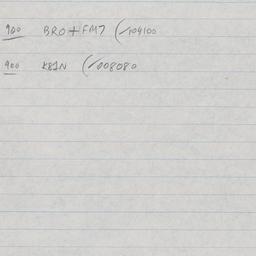 900 BRO+FM7 (/104100
900 K81N (/008080